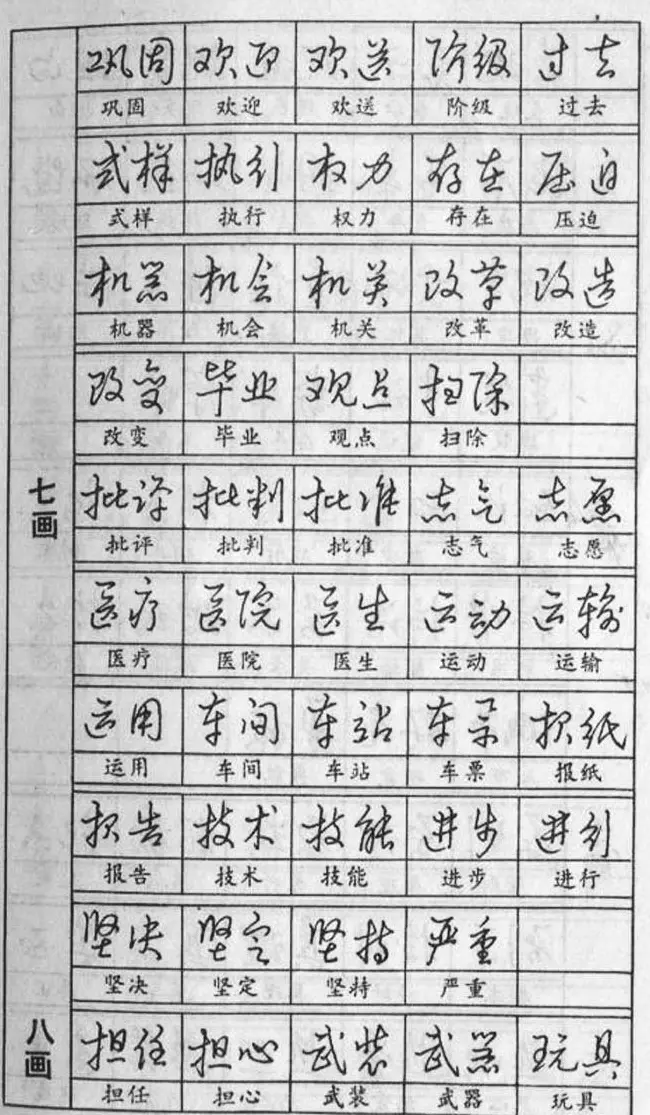 巩固 欢迎 欢送 阶级 过去
巩固 欢迎 欢送 阶级 过去
式样 执行 权力 存在 压迫
式样 执行 权力 存在 压迫
机器 机会 机关 改革 改造
机器 机会 机关 改革 改造
改变 毕业 观点 扫除
改变 毕业 观点 扫除
七画
批评 批判 批准 志气 志愿
批评 批判 批准 志气 志愿
医疗 医院 医生 运动 运输
医疗 医院 医生 运动 运输
运用 车间 车站 车票 报纸
运用 车间 车站 车票 报纸
报告 技术 技能 进步 进行
报告 技术 技能 进步 进行
坚决 坚定 坚持 严重
坚决 坚定 坚持 严重
八画
担任 担心 武装 武器 玩具
担任 担心 武装 武器 玩具